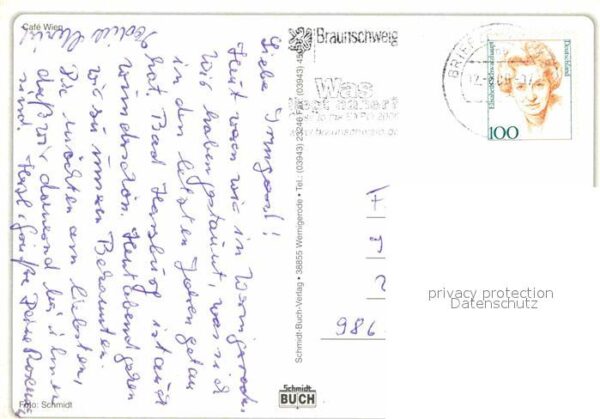 Café Wien
Liebe Irmgard!
Heut waren wir in Wernigerode.
Wir haben gestaunt, was sich
in den letzten Jahren getan
hat. Bad Harzburg ist auch
wunderschön. Heut abend gehen
wir zu unseren Bekannten.
Sie möchten am liebsten,
daß wir dauernd bei ihnen
sind. Herzl. Grüße Deine
Foto: Schmidt
Schmidt-Buch-Verlag • 38855 Wernigerode • Tel. (03943) 23246 Fax (03943) 45
Schmidt
BUCH
Braunschweig
Was
www.braunschweig.de
BRIEF
Elisabeth Schwarzhaupt
Deutschland
100
986
privacy protection
Datenschutz